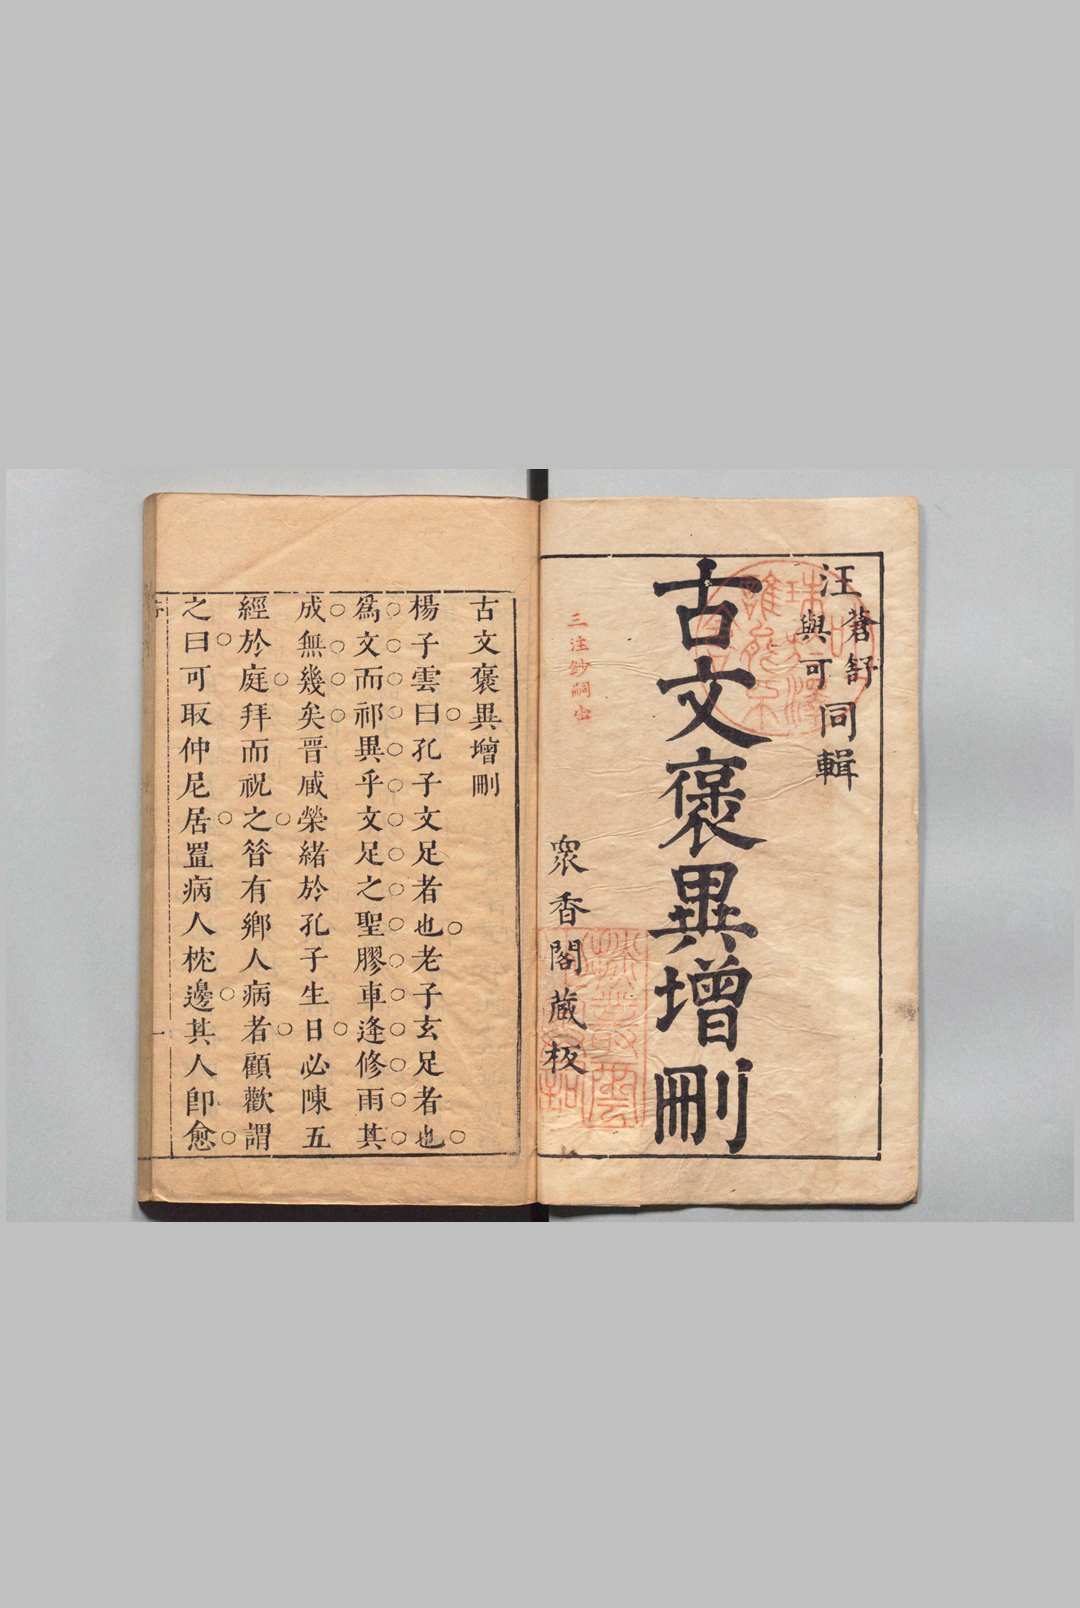 汪
蒼舒
與可
同輯
古文褒異增刪
衆香閣藏板
古文褒異增刪
楊子雲曰孔子文足者也老子玄足者也
爲文而祁異乎文足之聖膠車逢修雨其
成無幾矣晉臧榮緒於孔子生日必陳五
經於庭拜而祝之昝有鄉人病者顧歡謂
之曰可取仲尼居置病人枕邊其人卽愈
一